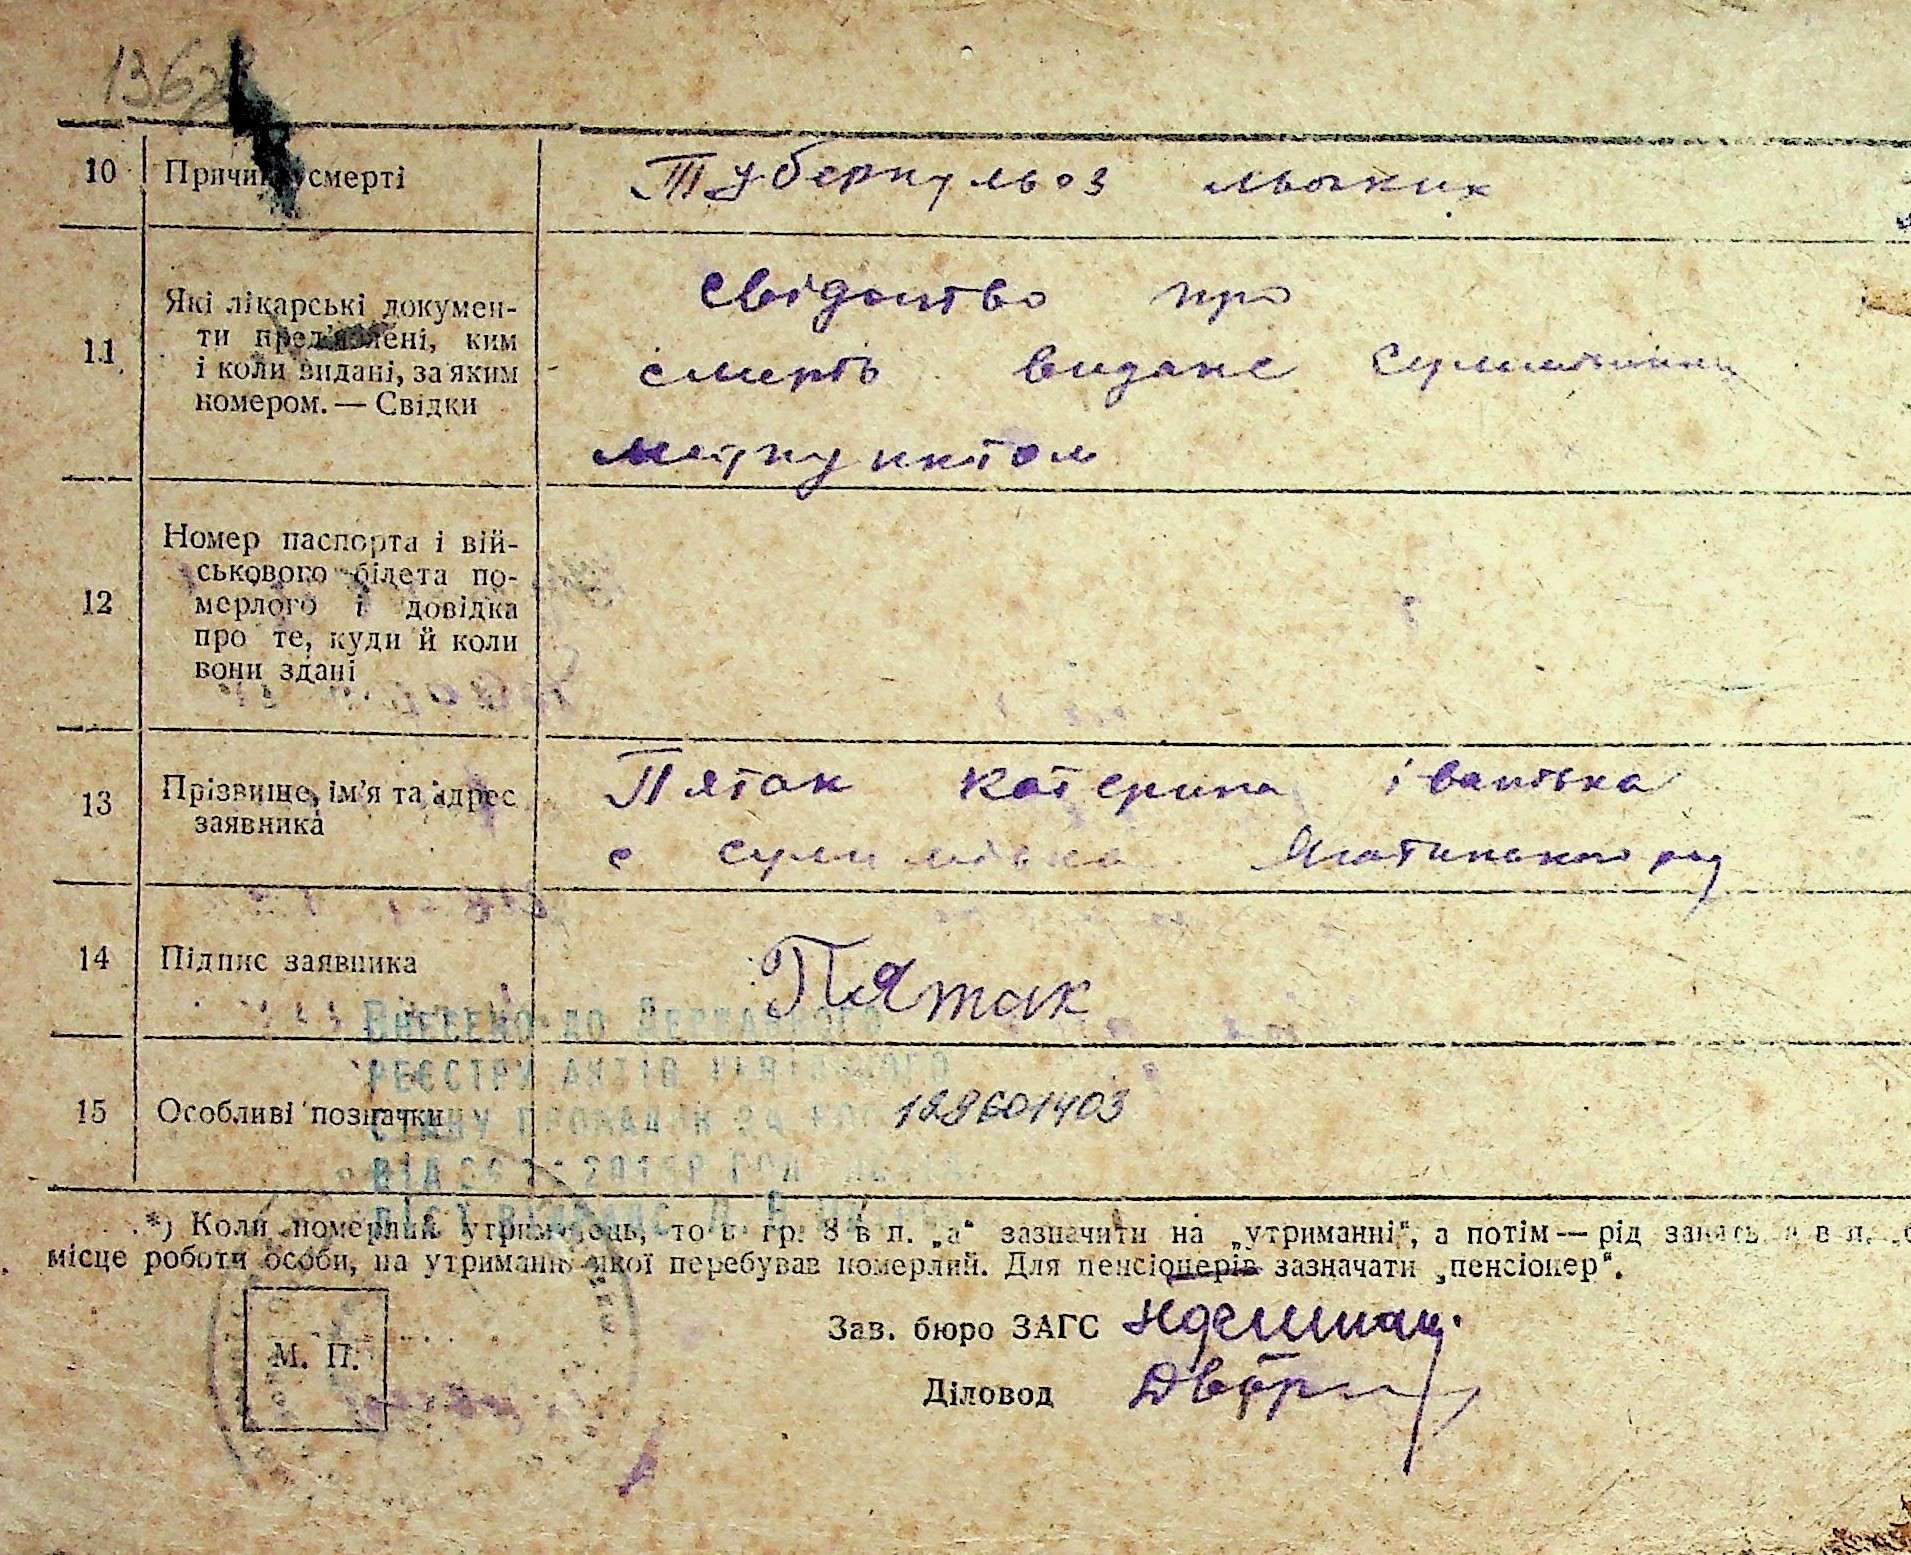 10 Причина смерті Туберкульоз льогких
Які лікарські докумен-
ти пред'явлені, ким
11 і коли видані, за яким
номером. — Свідки
Свідоцтво про
смерть видане
медпунктом
Номер паспорта і вій-
ськового білета по-
12 мерлого і довідка
про те, куди й коли
вони здані
13 Прізвище, ім'я та адрес
заявника
Пятак Катерина
с Сулимівка Яготинського рад
14 Підпис заявника Пятак
ВНЕСЕНО ДО ДЕРЖАВНОГО
РЕЄСТРУ АКТІВ ЦИВІЛЬНОГО
СТАНУ ГРОМАДЯН ЗА
15 Особливі позначки 128601403
*) Коли померлий утриманець, то в гр. 8 в п. „а“ зазначити на „утриманні“, а потім — рід занять, а в п.
місце роботи особи, на утриманні якої перебував померлий. Для пенсіонерів зазначати „пенсіонер“.
М. П.
Зав. бюро ЗАГС
Діловод